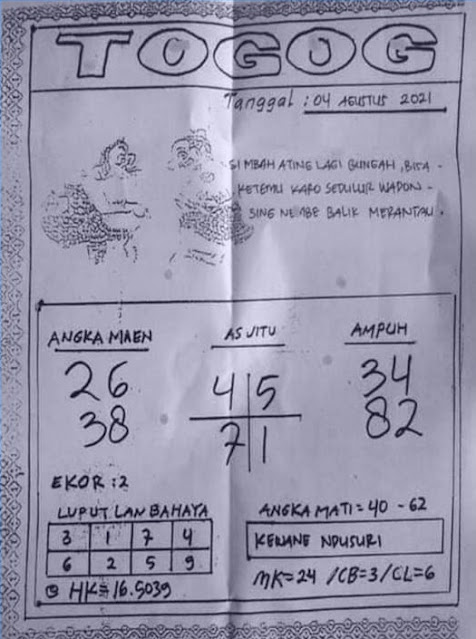 TOGOG
Tanggal : 04 AGUSTUS 2021
SI MBAH ATINE LAGI BUNGAH, BISA -
KETEMU KARO SEDULUR WADON -
SING NEMBE BALIK MERANTAU.
ANGKA MAEN
26
38
AS JITU
4 5
7 1
AMPUH
34
82
EKOR : 2
LUPUT LAN BAHAYA
3 1 7 4
6 2 5 9
HK = 16.5039
ANGKA MATI = 40 - 62
KENANE NDUSURI
MK=24 /CB=3/CL=6